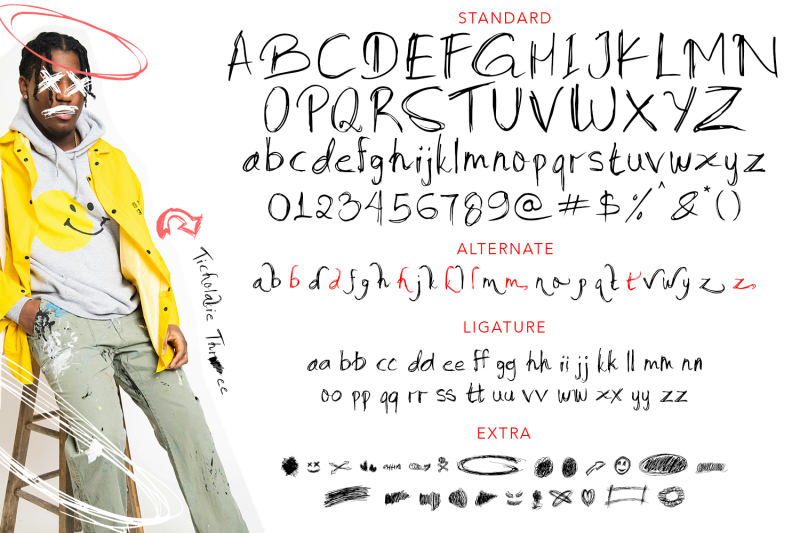 STANDARD
ABCDEFGHIJKLMN
OPQRSTUVWXYZ
abcdefghijklmnopqrstuvwxyz
0123456789@#$%^&*()
ALTERNATE
abbddfghhjkkllmmnopqttvwyzz
LIGATURE
aa bb cc dd ee ff gg hh ii jj kk ll mm nn
oo pp qq rr ss tt uu vv ww xx yy zz
EXTRA
Ticholadie